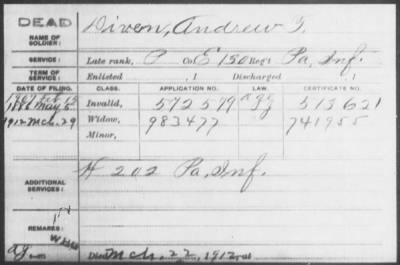 DEAD
NAME OF SOLDIER:
Diven, Andrew G.
SERVICE:
Late rank, P Co. E 150 Reg't Pa. Inf.
TERM OF SERVICE:
Enlisted , 1 Discharged , 1
DATE OF FILING. CLASS. APPLICATION NO. CERTIFICATE NO.
Invalid, 572579 513621
1912 Mch. 29 Widow, 983477 741955
Minor,
ADDITIONAL SERVICES:
H 202 Pa. Inf.
REMARKS:
Died Mch. 22, 1912, at